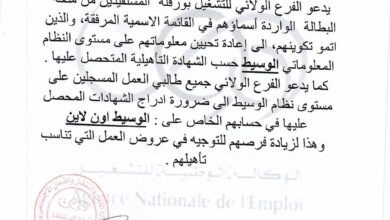 يدعو الفرع الولائي للتشغيل بورقلة المستفيدين من منحة
البطالة الواردة أسماؤهم في القائمة الاسمية المرفقة، والذين
اتمو تكوينهم، الى إعادة تحيين معلوماتهم على مستوى النظام
المعلوماتي الوسيط حسب الشهادة التأهيلية المتحصل عليها .
كما يدعو الفرع الولائي جميع طالبي العمل المسجلين على
مستوى نظام الوسيط الى ضرورة ادراج الشهادات المحصل
عليها في حسابهم الخاص على : الوسيط اون لاين
وهذا لزيادة فرصهم للتوجيه في عروض العمل التي تناسب
تأهيلهم .
الوكالة الوطنية للتشغيل
Agence Nationale de l'Emploi